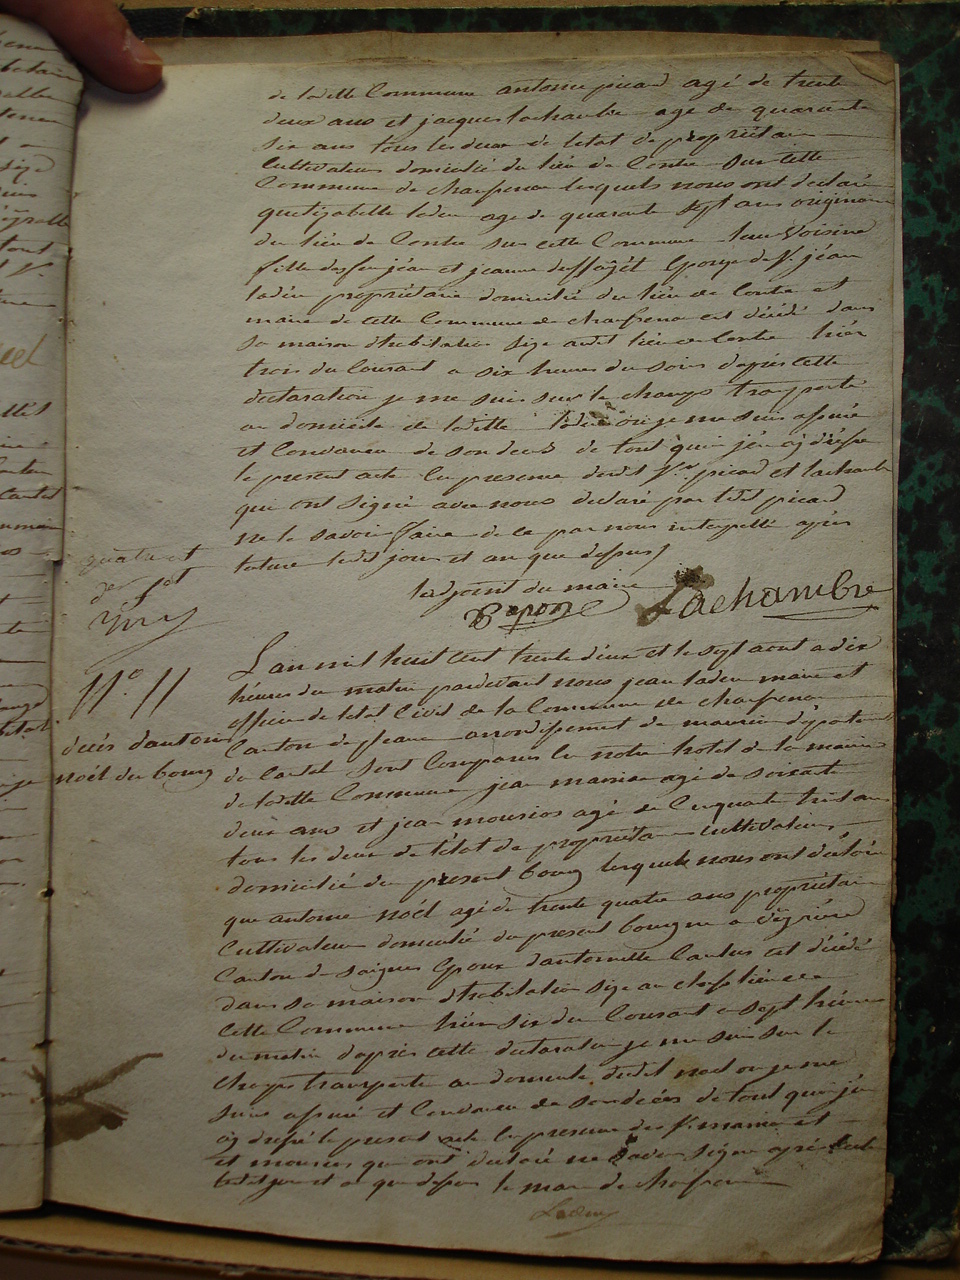 de laditte Commune antoine picard agé de trente
deux ans et jacques lachambre age de quarante
six ans tous les deux de letat de propriétaire
Cultivateurs domicilié du lieu de Contre sur cette
Commune de chaussenac lesquels nous ont declaré
quelizabette laden age de quarante sept ans originaire
du lieu de Contre sur cette Commune leur voisine
fille des feu jéan et jeanne Epouse de Sr. jéan
ladén propriétaire domicilié du lieu de Contre et
maire de cette Commune de chaussenac est décédé dans
sa maison d'habitation size audit lieu de Contre hièr
trois du Courant a six heures du soir daprès cette
declaration je me suis sur le champs transporté
au domicile de laditte laden ou je me suis assuré
et Convaincu de son deces de tout quoi jéu aj dréssé
le present acte En presence dedit Srs. picard et lachambre
qui ont signé avec nous declaré par ledit picard
ne le savoir faire de ce par nous interpellé après
lecture ledit jours et an que dessus
ladjoint du maire
Lachambre
quatre et
de
N°. 11
décés dantoine
noél du bourg
L'an mil huit cent trente déux et le sept aout a dix
héures du matin pardevant nous jean laden maire et
officier de letat Civil de la Commune de chaussenac
Canton de pleaux arrondissement de mauriac départem.
de Cantal sont Comparus En notre hotel de la mairie
de laditte Commune jean mamia agé de soixante
deux ans et jean mousios agé de Cinquante trois ans
tous les deux de létat de propriétaire Cultivateurs
domicilié du présent bourg lesquels nous ont déclaré
que antoine noél agé de trente quatre ans propriétaire
Cultivateur domicilié du présent bourg ne a
Canton de saignes Epoux dantoinette est décédé
dans sa maison d'habitation size au chef lieu de
cette Commune hièr six du Courant a sept héures
du matin d'aprés cette declaration je me suis sur le
champs transporté au domicile dudit noel ou je me
suis assuré et Convaincu de son décés de tout quoi jéu
aj dressé le present acte En presence des Sr. mamia et
et mousios qui ont declaré ne savoir signe après lecture
ledit jour et an que dessus le maire de chaussenac
Laden